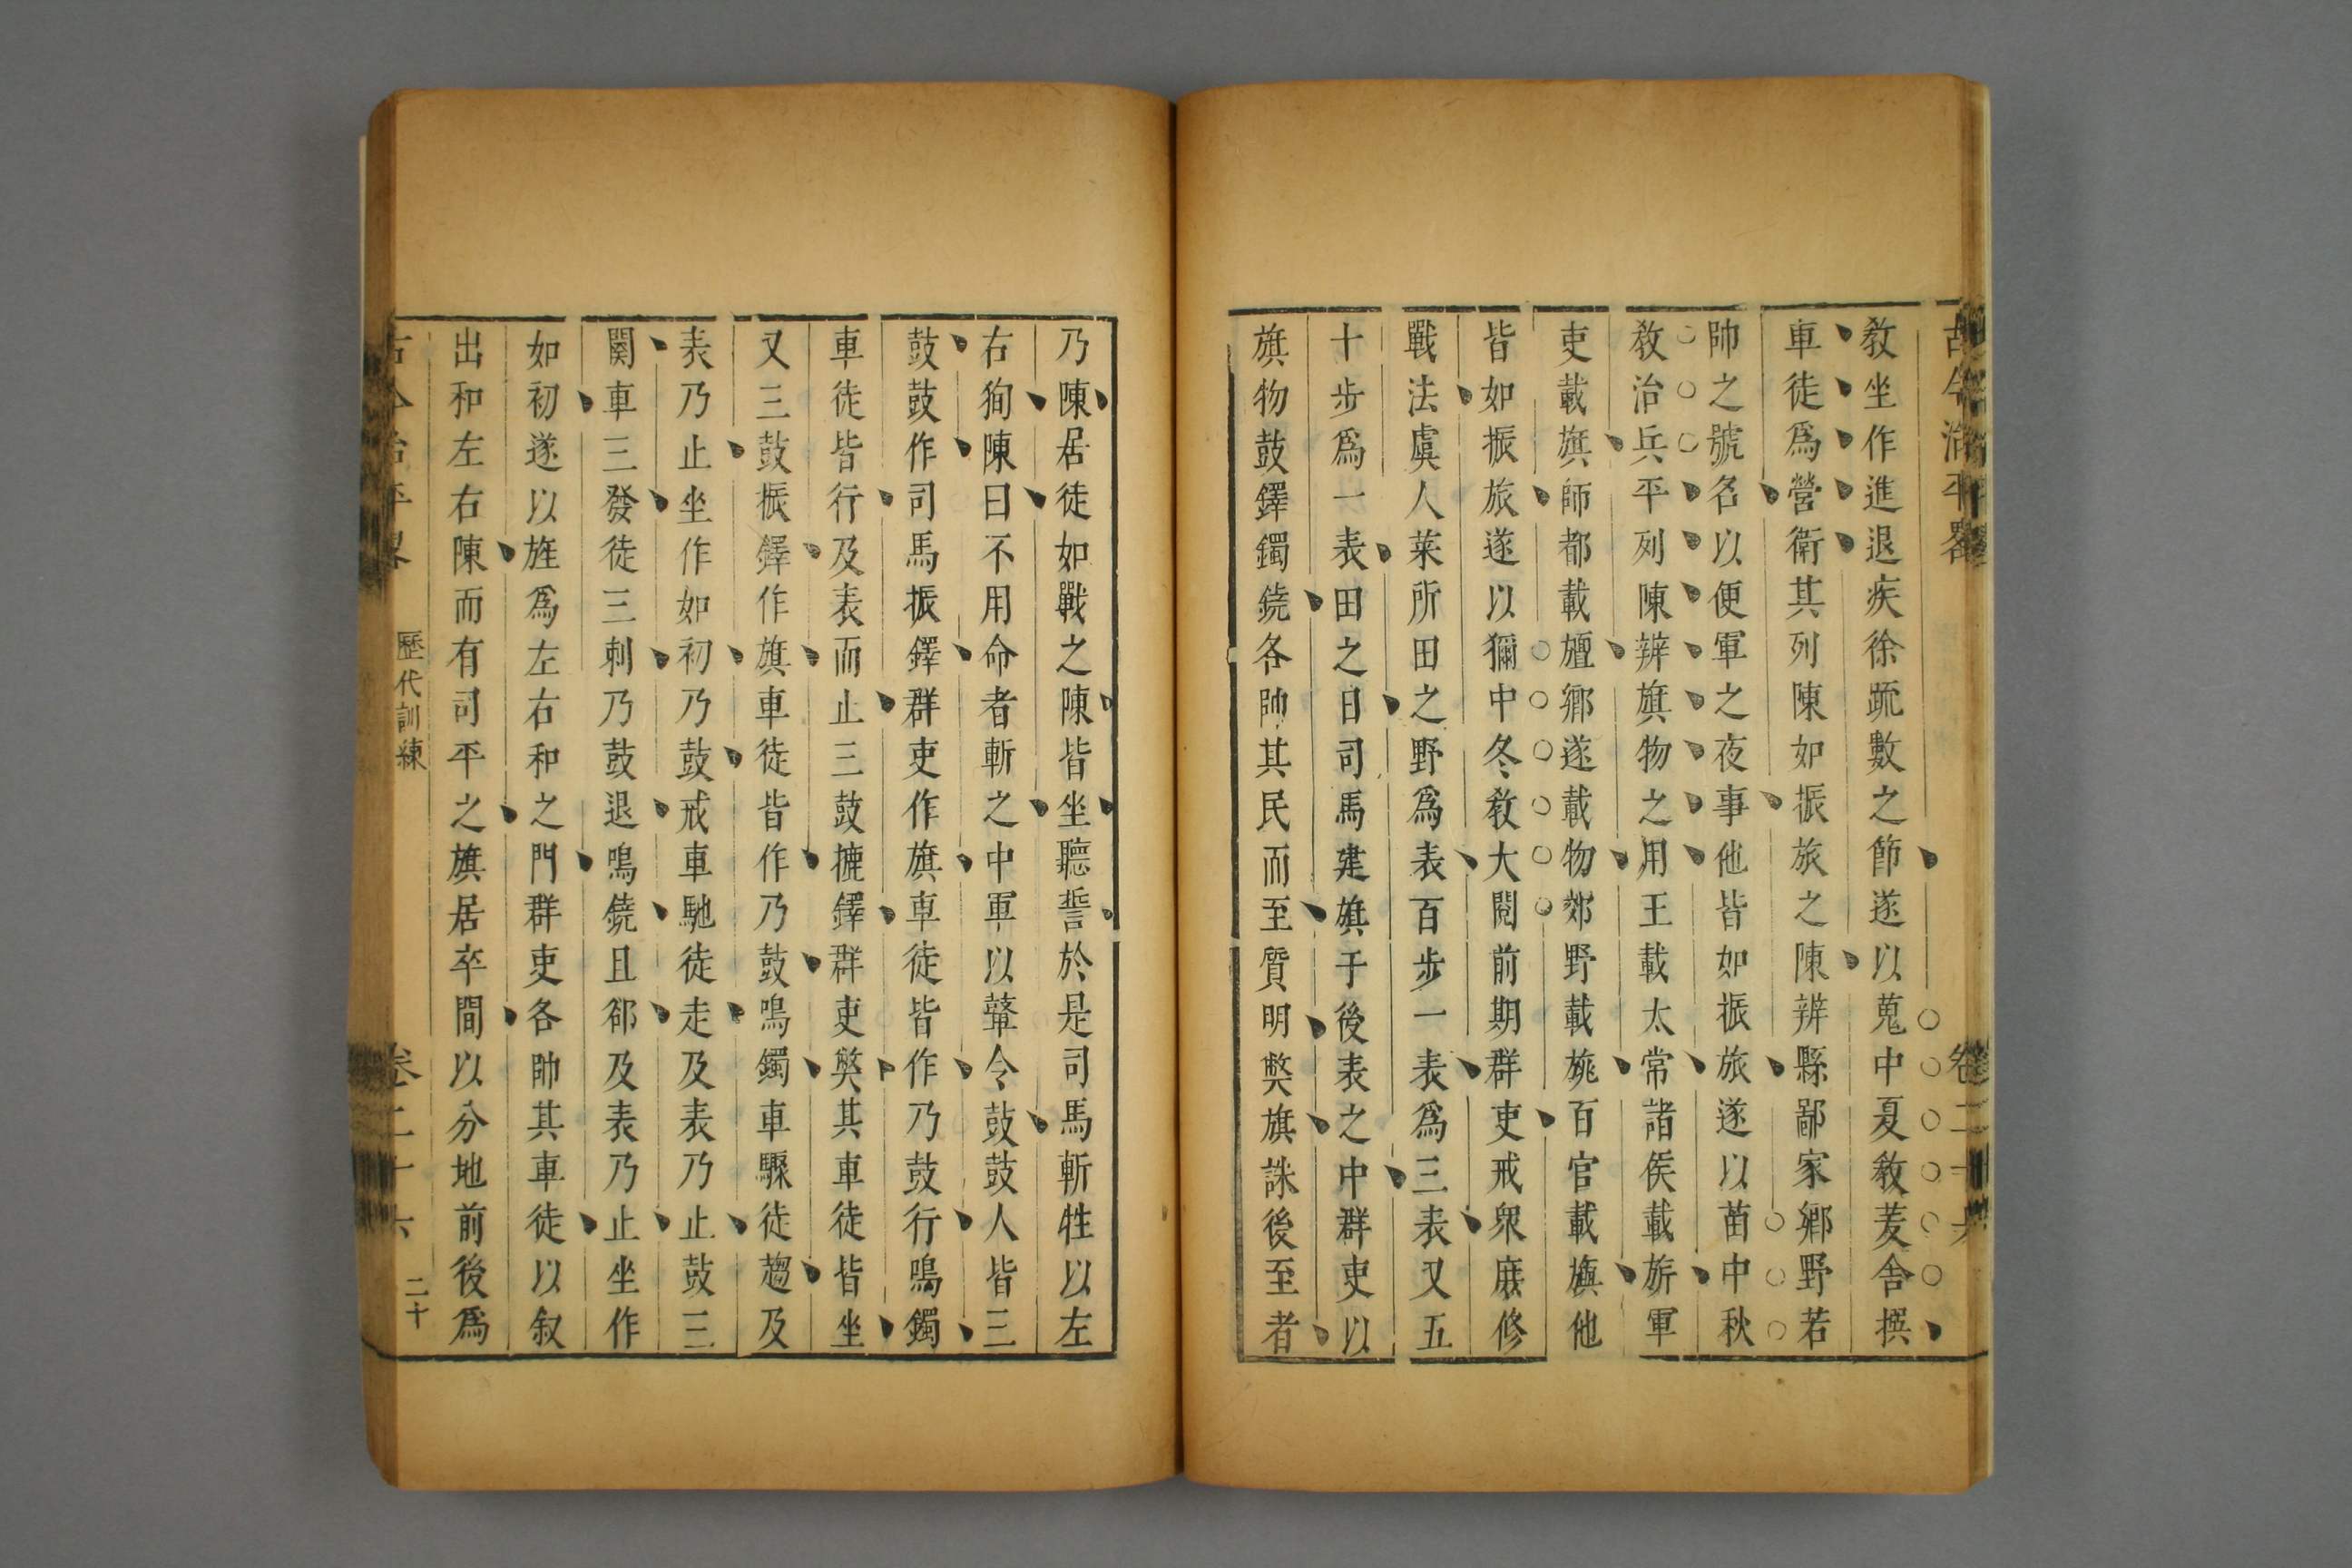 古今治平畧 卷二十六
教坐作進退疾徐疏數之節遂以蒐中夏教茇舍撰
車徒爲營衛其列陳如振旅之陳辨縣鄙家鄉野若
帥之號名以便軍之夜事他皆如振旅遂以苗中秋
教治兵平列陳辨旗物之用王載太常諸侯載旂軍
吏載旗師都載旜鄉遂載物郊野載旐百官載旟他
皆如振旅遂以獮中冬教大閱前期群吏戒衆庶修
戰法虞人萊所田之野爲表百步一表爲三表又五
十步爲一表田之日司馬建旗于後表之中群吏以
旗物鼓鐸鐲鐃各帥其民而至質明弊旗誅後至者
乃陳居徒如戰之陳皆坐聽誓於是司馬斬牲以左
右狥陳曰不用命者斬之中軍以鼙令鼓鼓人皆三
鼓鼓作司馬振鐸群吏作旗車徒皆作乃鼓行鳴鐲
車徒皆行及表而止三鼓摝鐸群吏弊其車徒皆坐
又三鼓振鐸作旗車徒皆作乃鼓鳴鐲車驟徒趨及
表乃止坐作如初乃鼓戒車馳徒走及表乃止鼓三
闋車三發徒三刺乃鼓退鳴鐃且郤及表乃止坐作
如初遂以旌爲左右和之門群吏各帥其車徒以叙
出和左右陳而有司平之旗居卒間以分地前後爲
古今治平畧 歷代訓練 卷二十六 二十